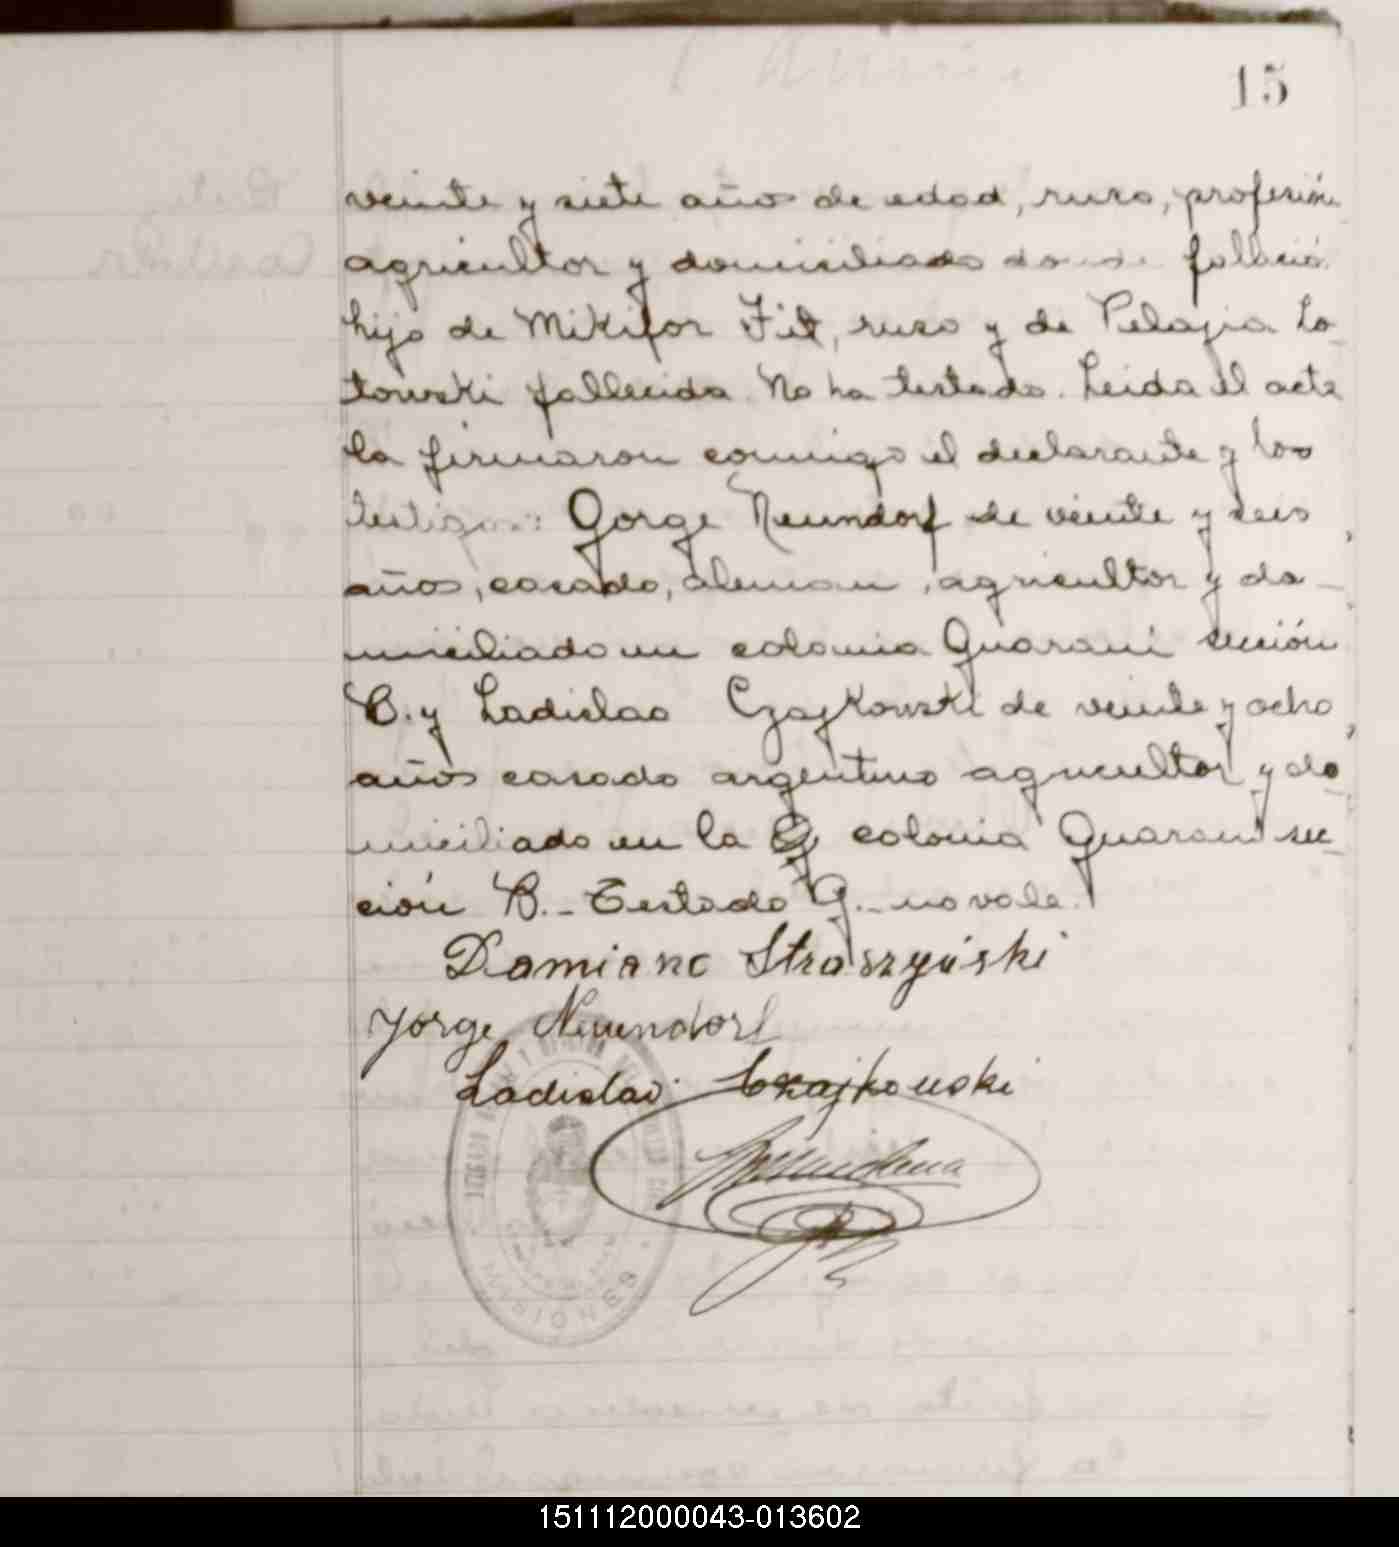 15
veinte y siete años de edad, ruso, profesión
agricultor y domiciliado donde falleció
hijo de Mikifor Fil, ruso y de Pelagia Lo-
towski fallecida. No ha testado. Leida el acta
la firmaron conmigo el declarante y los
testigos: Gorge Neundorf de veinte y seis
años, casado, aleman, agricultor y do-
miciliado en colonia Guaraní sección
B. y Ladislao Czajkowski de veinte y ocho
años casado argentino agricultor y do-
miciliado en la G colonia Guaraní sec-
ción B.- Testado G.- no vale.
Damiano Straszyński
Jorge Neuendorf
Ladislao Czajkowski
MISIONES
151112000043-013602